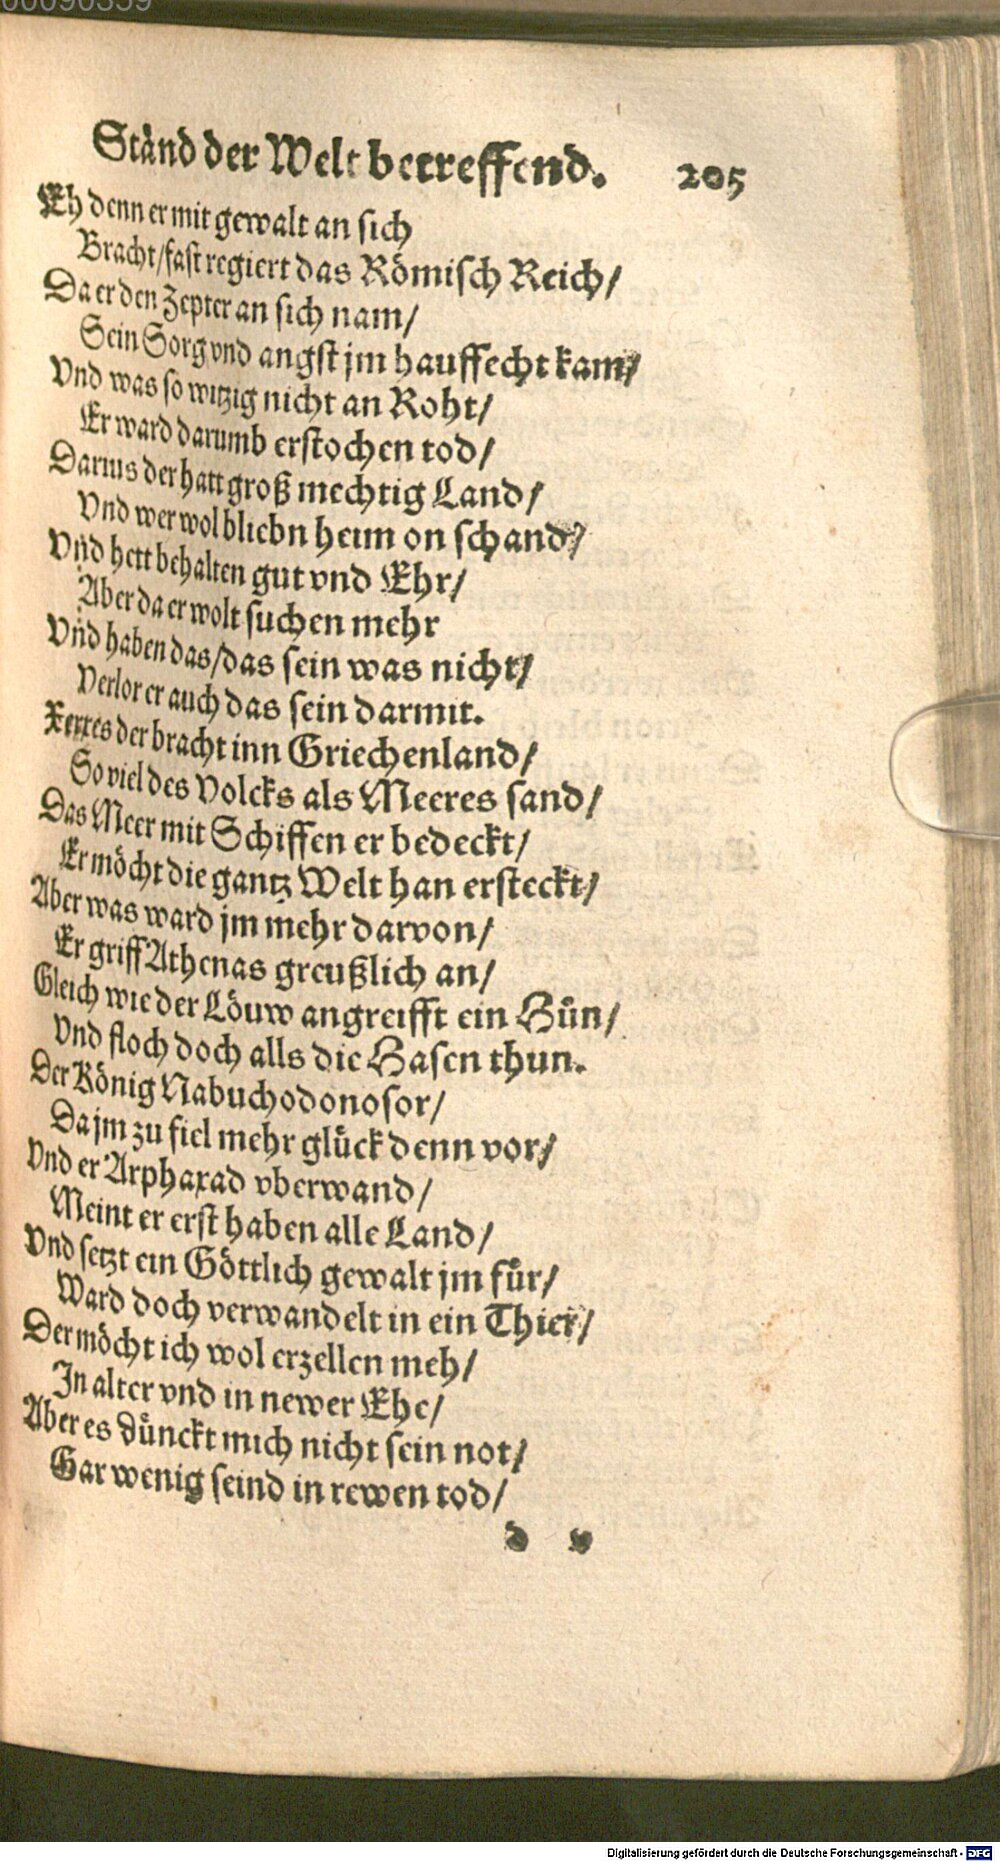 00090359
Ständ der Welt betreffend. 205
Eh denn er mit gewalt an sich
Bracht/fast regiert das Römisch Reich/
Da er den Zepter an sich nam/
Sein Sorg vnd angst jm hauffecht kam/
Vnd was so witzig nicht an Roht/
Er ward darumb erstochen tod/
Darius der hatt groß mechtig Land/
Vnd wer wol bliebn heim on schand/
Vnd hett behalten gut vnd Ehr/
Aber da er wolt suchen mehr
Vnd haben das/das sein was nicht/
Verlor er auch das sein darmit.
Xerxes der bracht inn Griechenland/
So viel des Volcks als Meeres sand/
Das Meer mit Schiffen er bedeckt/
Er möcht die gantz Welt han ersteckt/
Aber was ward jm mehr darvon/
Er griff Athenas greußlich an/
Gleich wie der Löuw angreifft ein Hůn/
Vnd floch doch alls die Hasen thun.
Der König Nabuchodonosor/
Da jm zu fiel mehr glück denn vor/
Vnd er Arphaxad vberwand/
Meint er erst haben alle Land/
Vnd setzt ein Göttlich gewalt jm für/
Ward doch verwandelt in ein Thier/
Der möcht ich wol erzellen meh/
In alter vnd in newer Ehe/
Aber es dünckt mich nicht sein not/
Gar wenig seind in rewen tod/
d v
Digitalisierung gefördert durch die Deutsche Forschungsgemeinschaft - DFG